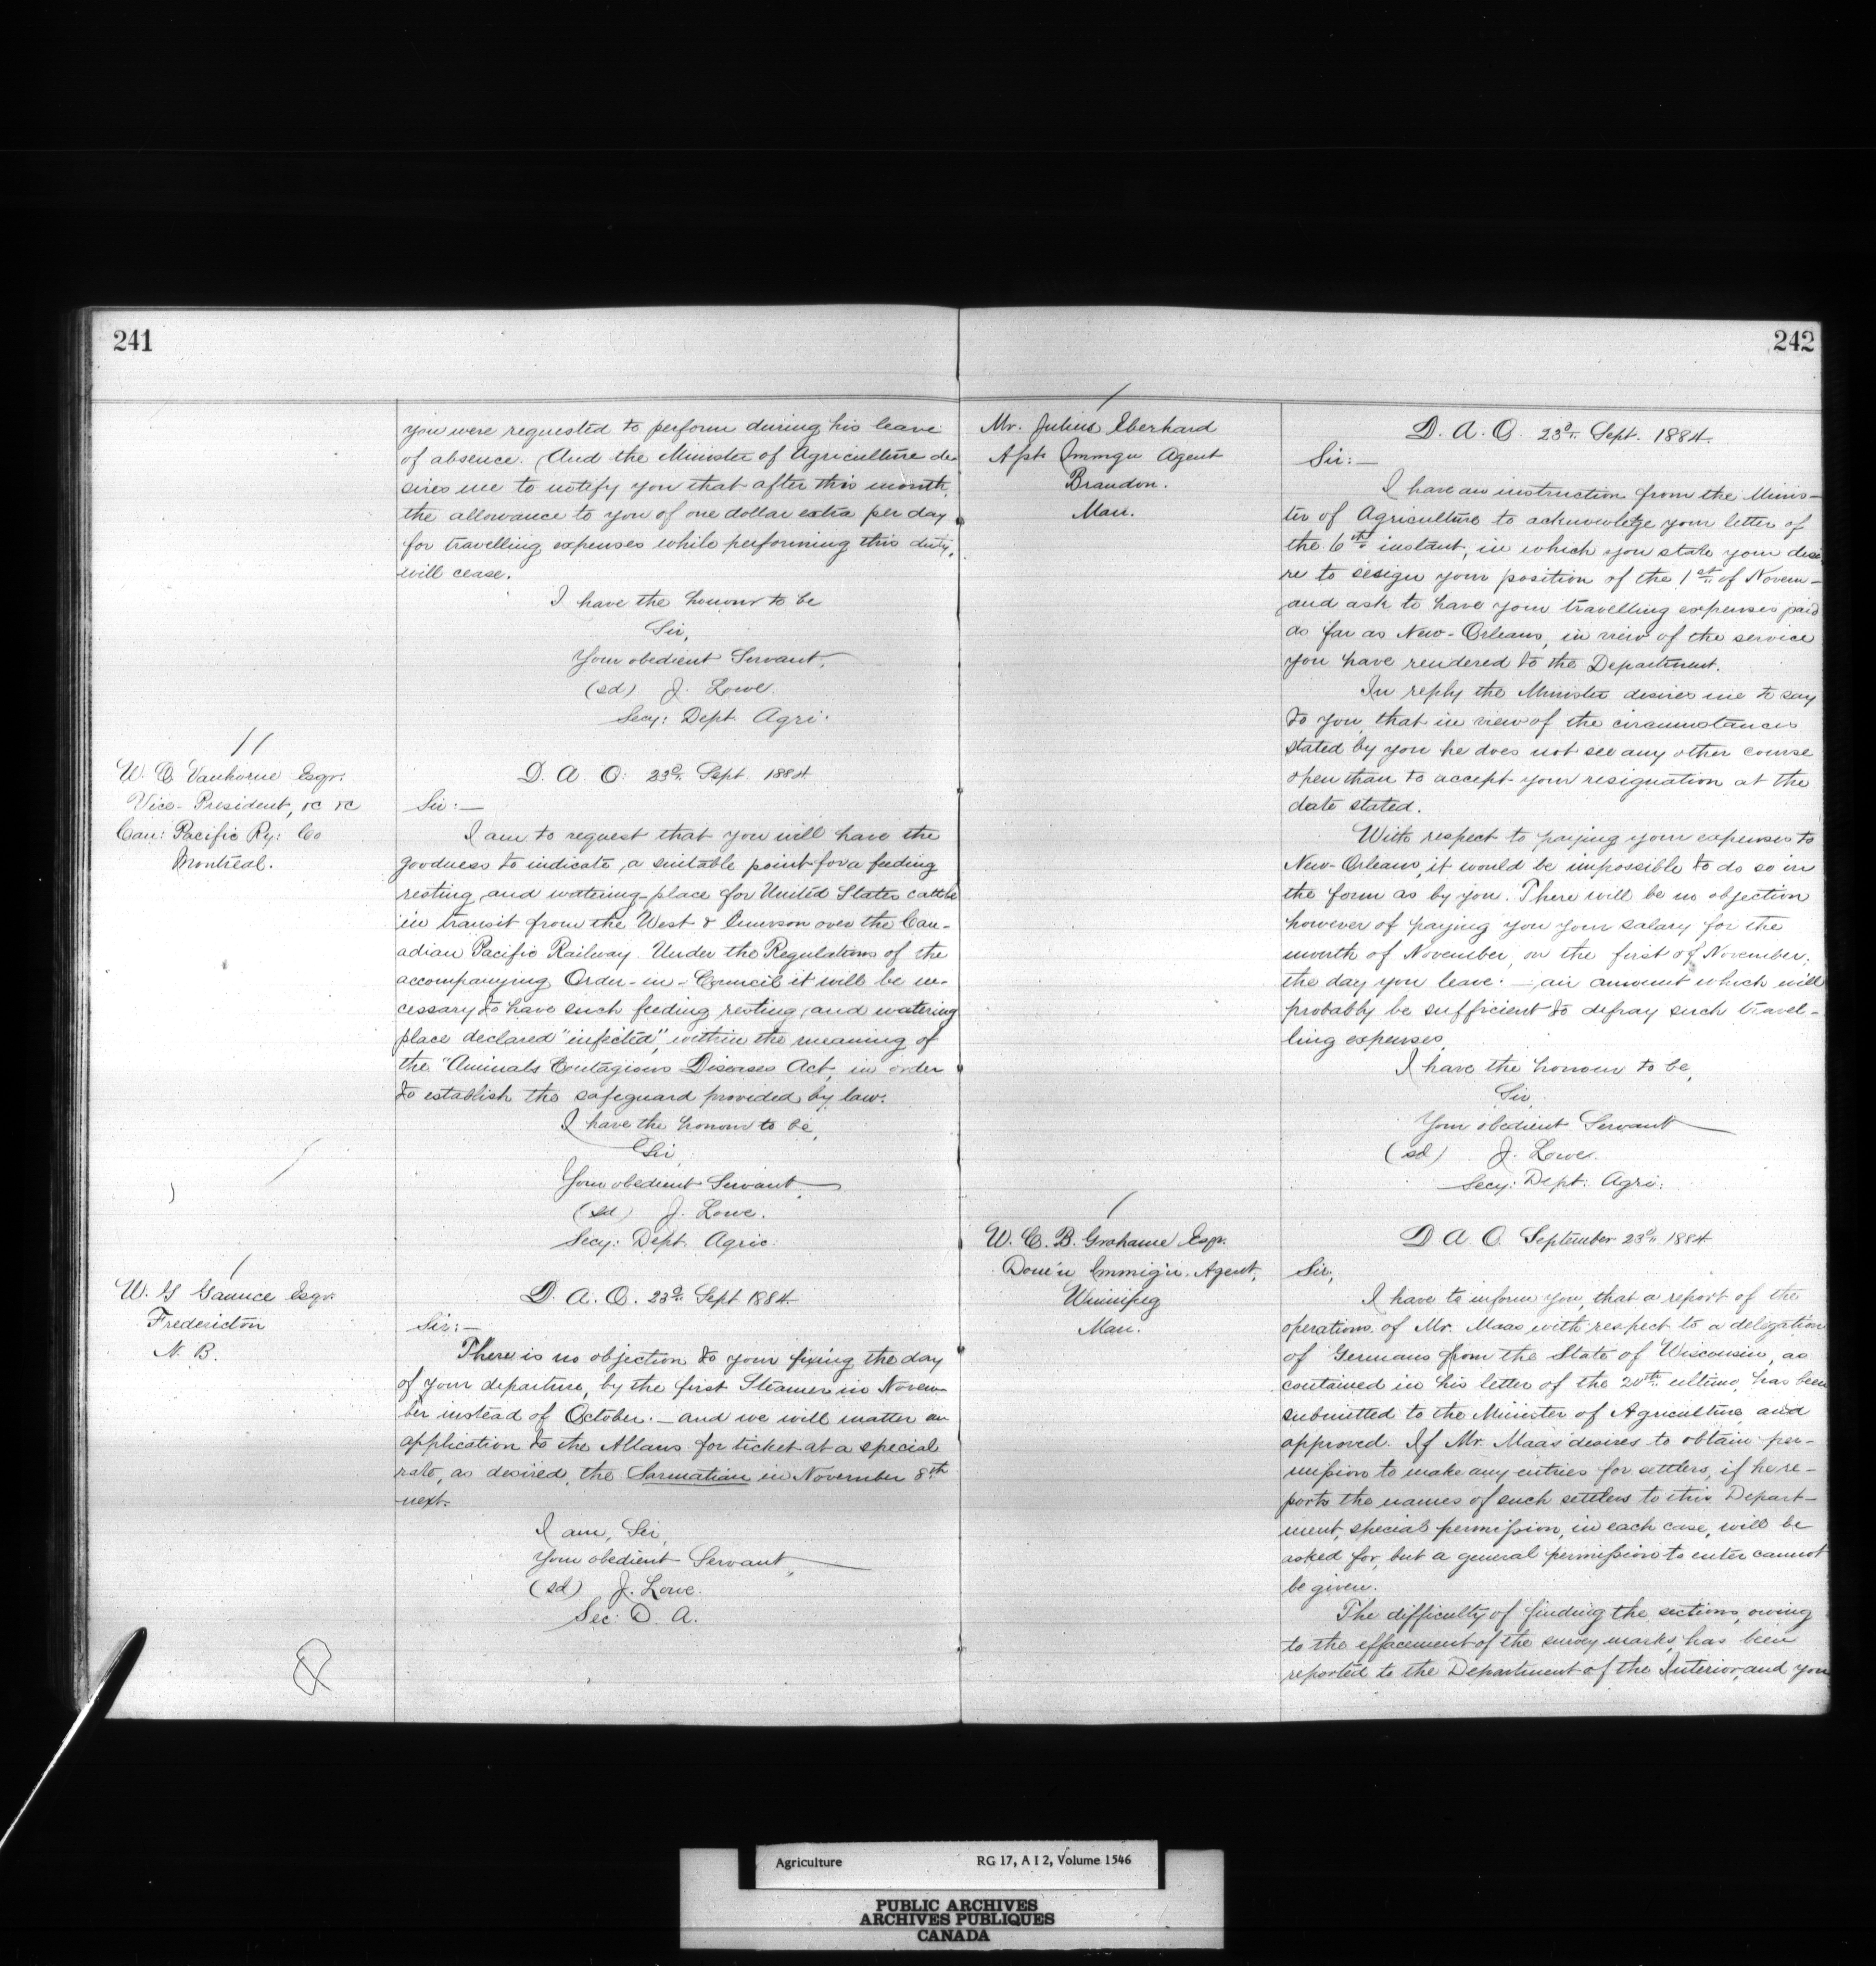 241
you were requested to perform during his leave
of absence. And the Minister of Agriculture de-
sires me to notify you that after this month,
the allowance to you of one dollar extra per day
for travelling expenses while performing this duty,
will cease.
I have the honour to be
Sir,
Your obedient Servant,
(sd) J. Lowe.
Secy: Dept. Agri:
W. C Vanhorne Esqr.
Vice-President, &c &c
Can: Pacific Ry: Co
Montreal.
D. A. O. 23d. Sept. 1884
Sir:—
I am to request that you will have the
goodness to indicate a suitable point for a feeding
resting and watering-place for United States cattle
in transit from the West & Emerson over the Can-
adian Pacific Railway. Under the Regulations of the
accompanying Order-in-Council it will be ne-
cessary to have such feeding resting and watering
place declared "infected", within the meaning of
the "Animals Contagious Diseases Act, in order
to establish the safeguard provided by law.
I have the honour to be,
Sir,
Your obedient Servant,
(sd) J. Lowe.
Secy: Dept. Agric:
W. G Gaunce Esqr.
Fredericton
N. B.
D. A. O. 23d. Sept 1884.
Sir:—
There is no objection to your fixing the day
of your departure, by the first Steamer in Novem-
ber instead of October.— and we will matter an
application to the Allans for ticket at a special
rate, as desired, the Sarmatian in November 8th
next.
I am, Sir,
Your obedient Servant,
(sd) J. Lowe.
Sec: D. A.
242
Mr. Julius Eberhard
Asst. Immgn Agent
Brandon.
Man.
D. A. O. 23d. Sept. 1884.
Sir:—
I have an instruction from the Minis-
ter of Agriculture to acknowledge your letter of
the 6th instant, in which you state your desi
re to resign your position of the 1st of Novem-
and ask to have your travelling expenses paid
as far as New-Orleans, in view of the service
you have rendered to the Department.
In reply the Minister desires me to say
to you, that in view of the circumstances
stated by you he does not see any other course
open than to accept your resignation at the
date stated.
With respect to paying your expenses to
New-Orleans, it would be impossible to do so in
the form as by you. There will be no objection
however of paying you your salary for the
month of November, on the first of November,
the day you leave.— an amount which will
probably be sufficient to defray such travel-
ling expenses.
I have the honour to be,
Sir,
Your obedient Servant
(sd) J. Lowe.
Secy: Dept: Agri:
W. C. B. Grahame Esqr.
Dom'n Immig'n. Agent,
Winnipeg
Man.
D A. O. September 23d. 1884
Sir,
I have to inform you, that a report of the
operations of Mr. Maas with respect to a delegation
of Germans from the State of Wisconsin, as
contained in his letter of the 20th. ultimo, has been
submitted to the Minister of Agriculture and
approved. If Mr. Maas desires to obtain per-
mission to make any entries for settlers, if he re-
ports the names of such settlers to this Depart-
ment, special permission, in each case, will be
asked for, but a general permission to enter cannot
be given.
The difficulty of finding the sections, owing
to the effacement of the survey marks, has been
reported to the Department of the Interior, and you
Agriculture RG 17, A I 2, Volume 1546
PUBLIC ARCHIVES
ARCHIVES PUBLIQUES
CANADA